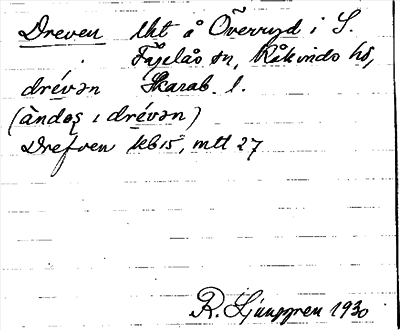 Dreven lht å Överryd i S.
Fågelås sn, Kåkinds hd,
drévən Skarab. l.
(àndəs ı drévən)
Drefven kb 15, mtt 27
R. Ljunggren 1930